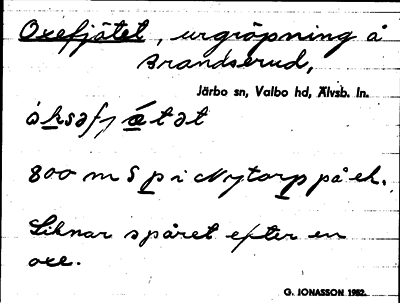 Oxefjätet, urgröpning å
Brandserud,
Järbo sn, Valbo hd, Älvsb. ln.
800 m S p i Nytorp på ek.
Liknar spåret efter en
oxe.
G. JONASSON 1982.